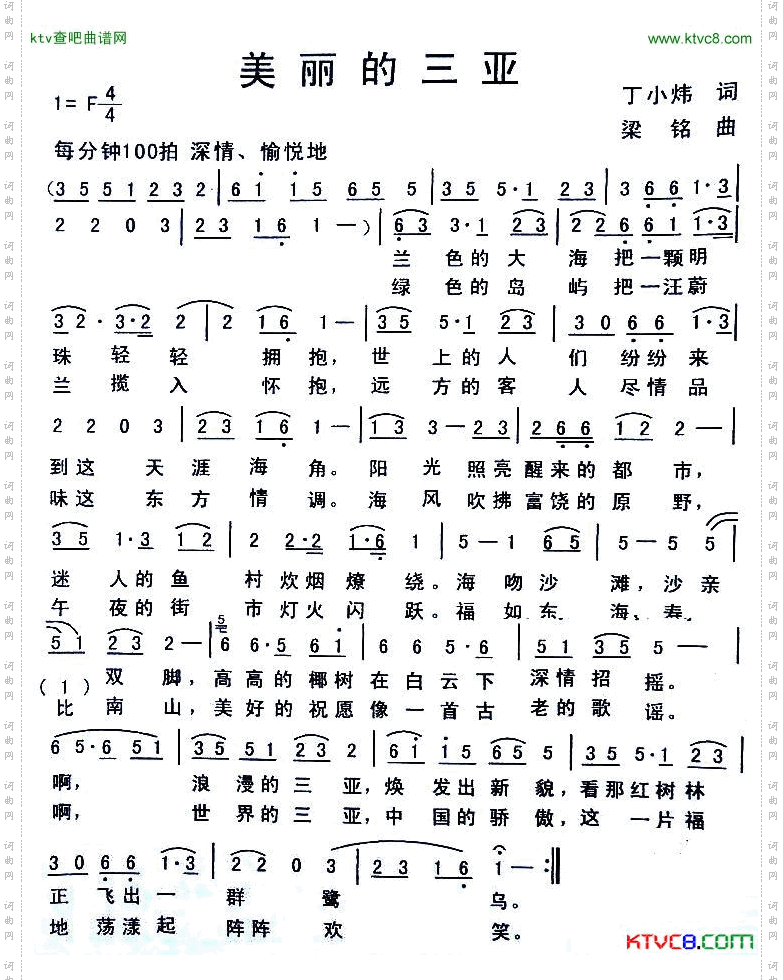 ktv查吧曲谱网
www.ktvc8.com
美丽的三亚
1= F 4/4
丁小炜 词
梁铭 曲
每分钟100拍 深情、愉悦地
(3 5 5 1 2 2 3 2 | 6 i i 5 6 5 5 | 3 5 5·1 2 3 | 3 6 6 1·3 |
2 2 0 3 | 2 3 1 6 1 —) | 6 3 3·1 2 3 | 2 2 6 6 1 1·3 |
兰 色的大 海 把一颗明
绿 色的岛 屿 把一汪蔚
3 2· 3·2 2 | 2 1 6 1 — | 3 5 5·1 2 3 | 3 0 6 6 1·3 |
珠 轻 轻 拥 抱, 世 上的人 们 纷纷来
兰 揽 入 怀 抱, 远 方的客 人 尽情品
2 2 0 3 | 2 3 1 6 1 — | 1 3 3 — 2 3 | 2 6 6 1 2 2 — |
到这 天 涯 海 角。 阳 光 照亮醒来的都 市,
味这 东 方 情 调。 海 风 吹拂富饶的原 野,
3 5 1·3 1 2 | 2 2·2 1·6 | 1 5 — 1 6 5 | 5 — — 5 |
迷 人的鱼 村 炊烟 燎 绕。海 吻 沙 滩, 沙 亲
午 夜的街 市 灯火 闪 跃。福 如 东 海, 寿
5 1 2 3 2 — | 6 6·5 6 1 | 6 6 5·6 | 5 1 3 5 5 — |
双 脚, 高 高的 椰树 在 白云 下 深情 招 摇。
(1) 比 南 山, 美 好的 祝愿 像 一首 古 老的 歌 谣。
6 5·6 5 1 | 3 5 5 1 2 3 2 | 6 i i 5 6 5 5 | 3 5 5·1 2 3 |
啊, 浪 漫的三 亚, 焕 发出新 貌, 看那红树林
啊, 世 界的三 亚, 中 国的骄 傲, 这 一片福
3 0 6 6 1·3 | 2 2 0 3 | 2 3 1 6 | 1 — :||
正 飞出一 群 鹭 鸟。
地 荡漾起 阵阵 欢 笑。
KTVC8.COM